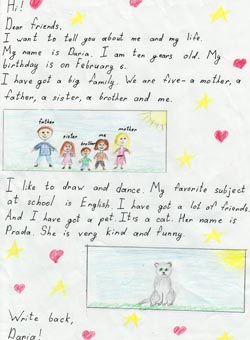 Hi!
Dear friends,
I want to tell you about me and my life.
My name is Daria. I am ten years old. My
birthday is on February 6.
I have got a big family. We are five- a mother, a
father, a sister, a brother and me.
father
sister
brother
me
mother
I like to draw and dance. My favorite subject
at school is English. I have got a lot of friends.
And I have got a pet. It is a cat. Her name is
Prada. She is very kind and funny.
Write back,
Daria!